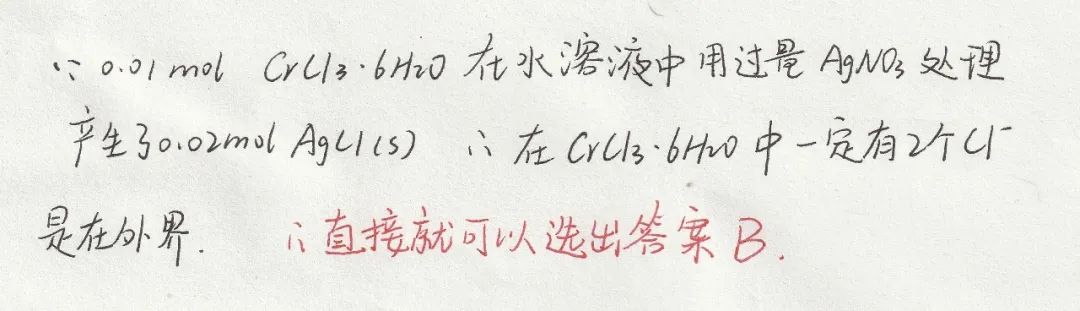 ∵ 0.01mol CrCl3·6H2O 在水溶液中用过量 AgNO3 处理
产生了0.02mol AgCl(s) ∴ 在CrCl3·6H2O 中一定有2个Cl⁻
是在外界. ∴直接就可以选出答案 B.